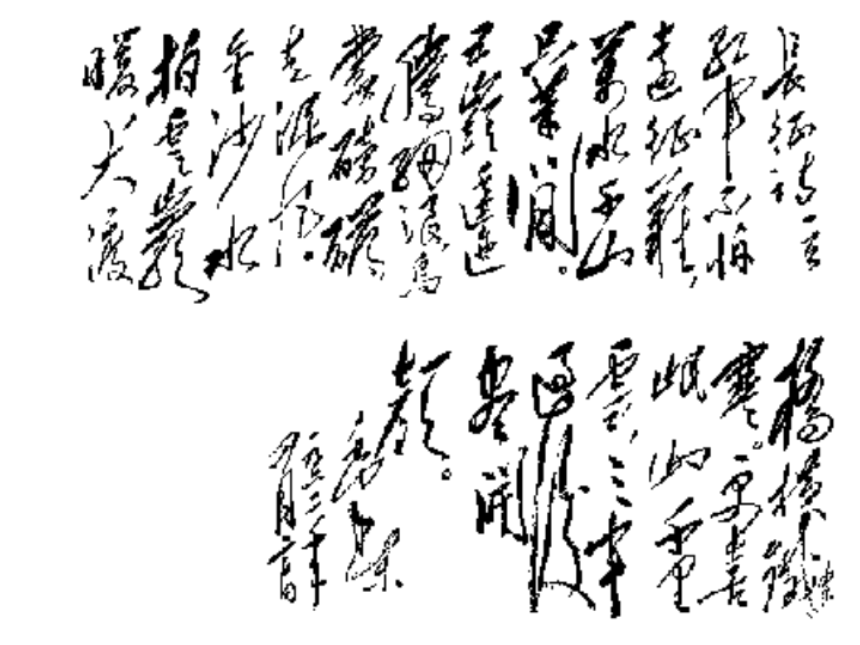 長征詩一首
紅軍不怕
遠征難，
萬水千山
只等閒。
五嶺逶迤
騰細浪烏
蒙磅礴
走泥丸。
金沙水
拍雲巖
暖大渡
橋橫鐵索
寒。更喜
岷山千里
雪，三軍
過後
盡開
顏。
毛澤東